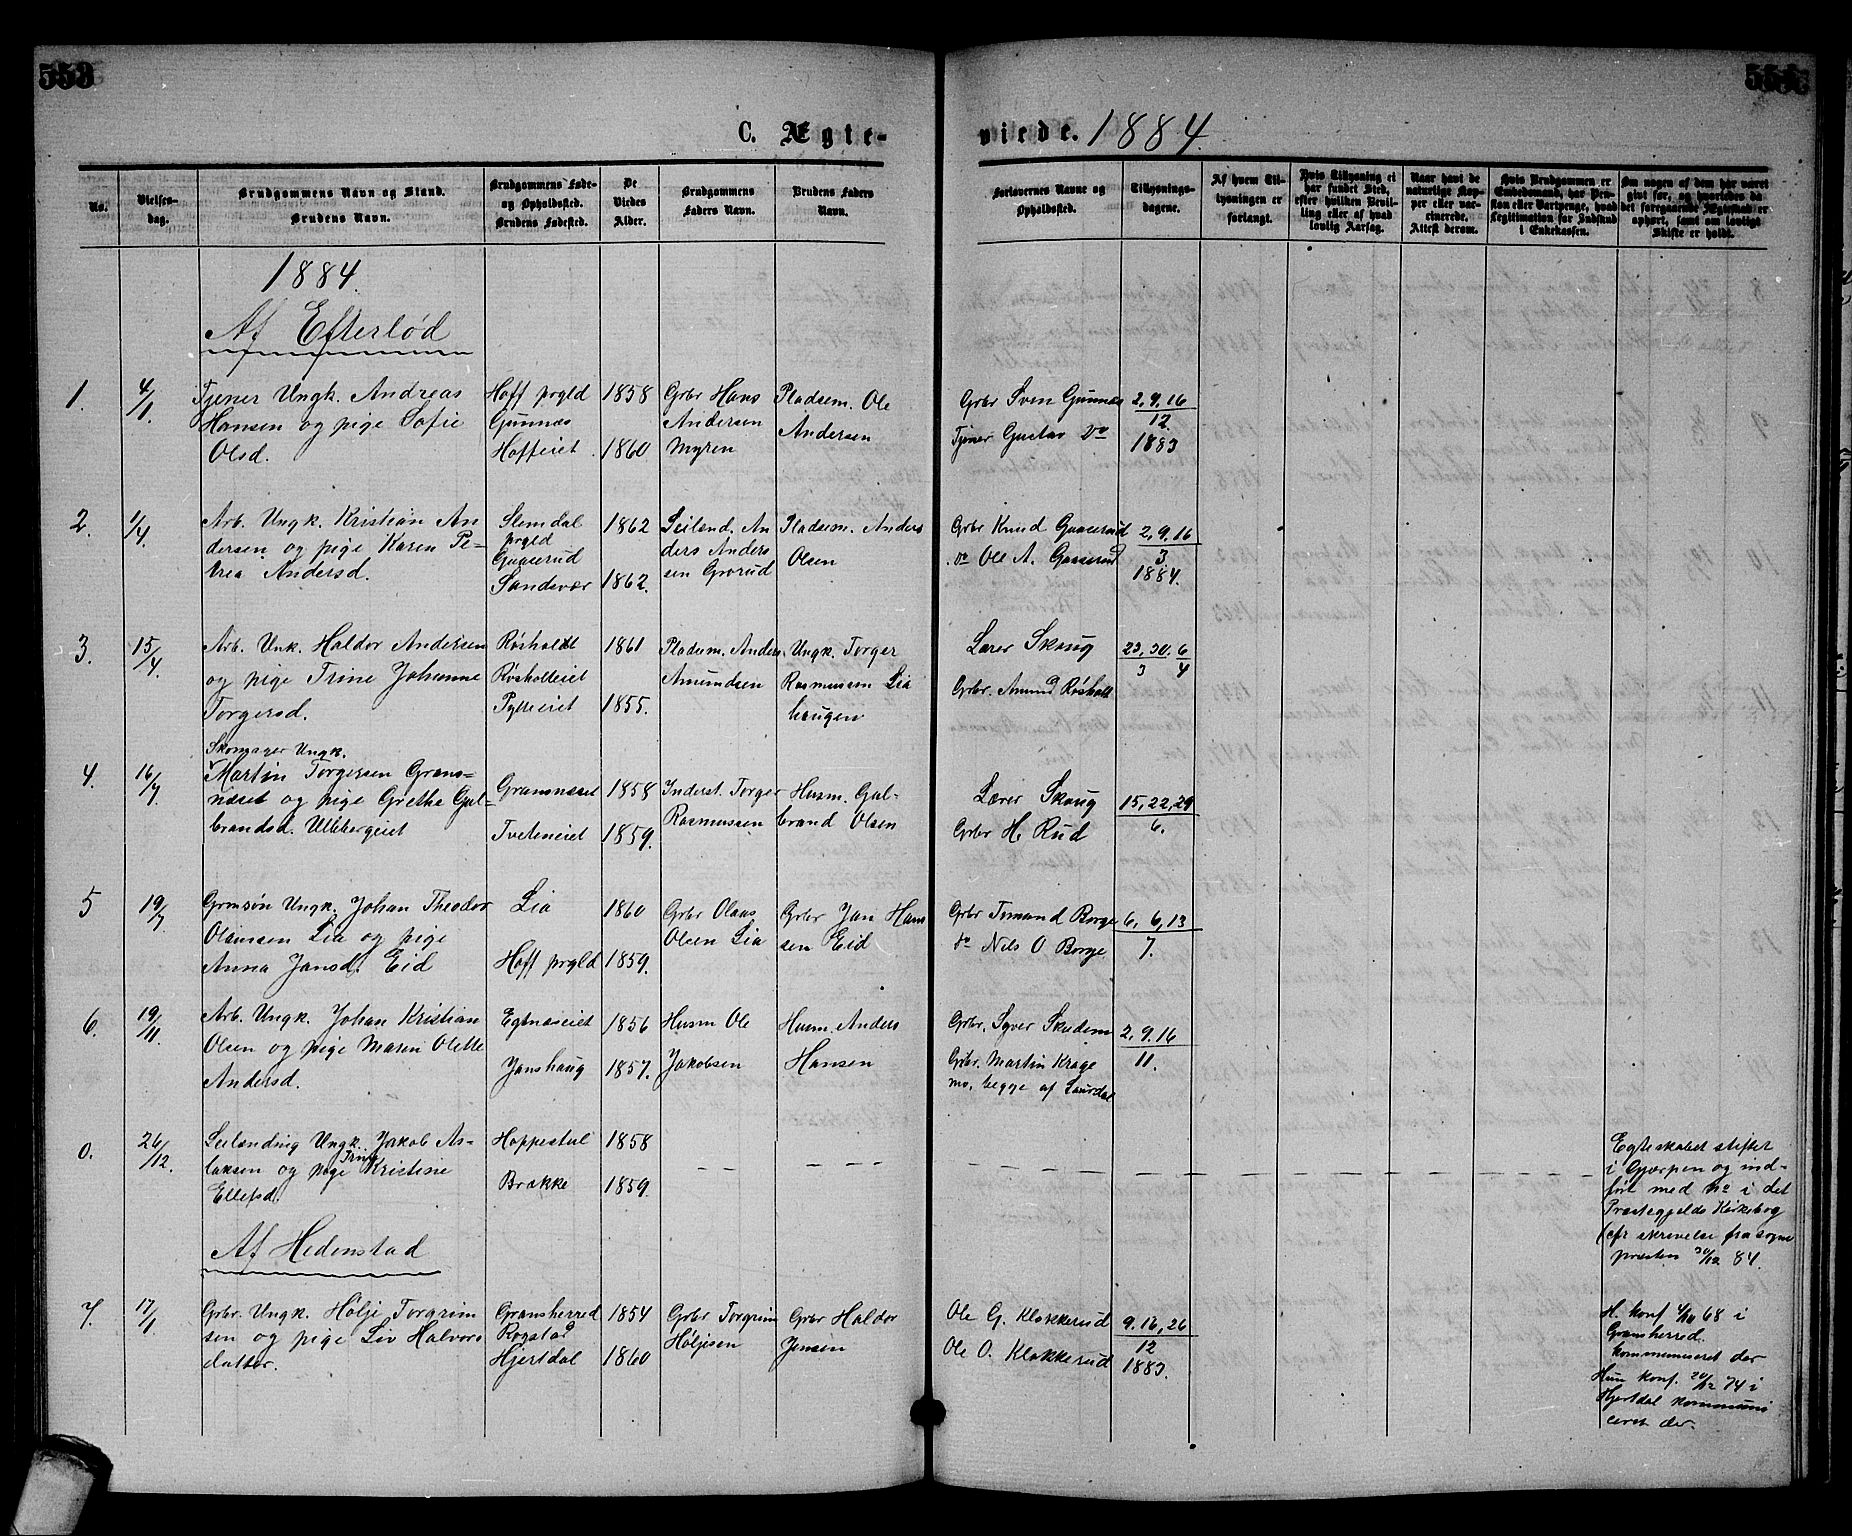 553
C. Ægte-
viede. 1884.
No.
Vielses-
dag.
Brudgommens Navn og Stand.
Brudens Navn.
Brudgommens Føde-
og Opholdssted.
Brudens Fødested.
De
Viedes
Alder.
Brudgommens
Faders Navn.
Brudens Faders
Navn.
Forlovernes Navne og
Opholdssted.
Tillysnings-
dagene.
Af hvem Til-
lysningen er
forlangt.
Hvis Tillysning ei
har fundet Sted,
efter hvilken Bevil-
ling eller af hvad
lovlig Aarsag.
Naar havt de
naturlige Kop-
per eller vac-
cinerede.
Attest derom.
Hvis Brudgommen er
Embedsmand, har Pen-
sion eller Vartpenge, hvad
Legitimation for Indskud
i Enkekassen.
Om nogen af dem har været
gift før, og hvorledes da
det foregaaende Ægteskab er
ophørt, samt om lovligt
Skifte er holdt.
1884.
Af Eftelød
1. 4/1.
Tjener Ungk. Andreas
Hansen og pige Sofie
Olsd.
Hoff prgld
Gunnæs
Hoffeiet
1858
1860
Grbr Hans
Andersen
Myren
Pladsm. Ole
Andersen
Grbr Sven Gunnæs
Tjener Gustav do
2, 9. 16
12.
1883
2. 1/4.
Arb. Ungk. Kristian An
dersen og pige Karen Pe-
trea Andersd.
Slemdal
prgld
Gaaserud
Sandsvær
1862
1862.
Seilend. An
ders Anders
sen Grorud
Pladsm. Anders
Olsen
Grbr Knud Gaaserud
do Ole A. Gaaserud
2, 9. 16
3
1884.
3. 15/4.
Arb. Unk. Haldor Andersen
og pige Trine Johanne
Torgersd.
Røsholdt
Røsholteiet
Pytteiet
1861
1855.
Pladsm. Anders
Amundsen
Ungk. Torger
Rasmussen Lia
haugen
Lærer Skaug
Grbr. Amund Røsholt
23, 30. 6
3 4
4. 16/7.
Skomager Ungk.
Martin Torgersen Grans-
næset og pige Grethe Gul-
brandsd. Ulbergeiet
Gransnæset
Tveteneiet
1858
1859.
Inderst. Torger
Rasmussen
Husm. Gul-
brand Olsen
Lærer Skaug
Grbr H. Rud
15, 22, 29
6.
5 19/7.
Grmsøn Ungk. Johan Theodor
Olaussen Lia og pige
Anna Jansd. Eid
Lia
Hoff prgld
1860
1859.
Grbr Olaus
Olsen Lia
Grbr Jan Han
sen Eid
Grbr Tomund Borge
do Nils O Borge
6, 6, 13
7.
6. 19/11.
Arb. Ungk. Johan Kristian
Olsen og pige Maren Olette
Andersd.
Egtnæseiet
Janshaug
1856
1857.
Husm Ole
Jakobsen
Husm. Anders
Hansen
Grbr. Syver Skudem
Grbr. Martin Krage
mo, begge af Laurdal
2, 9. 16
11.
0. 26/12.
Seilending Ungk. Jakob As-
laksen og pige Trine Kristine
Ellefsd.
Hoppestul
Brække
1858
1859.
Egteskabet stiftet
i Gjerpen og ind-
ført med No i det
Præstegjelds Kirkebog
(cfr skrivelse fra sogne
præsten 30/12 84.
Af Hedenstad
7. 17/1.
Grbr. Ungk. Hølje Torgrim
sen og pige Liv Halvors
datter.
Gransherred
Rogstad
Hjertdal
1854
1860
Grbr Torgrim
Høljesen
Grbr Haldor
Jensen
Ole G. Klokkerud
Ole O. Klokkerud
9. 16, 26
12
1883.
H. konf 4/10 68 i
Gransherred.
kommuniseret der
Hun konf. 20/12 74 i
Hjertdal kommuni
ceret der.